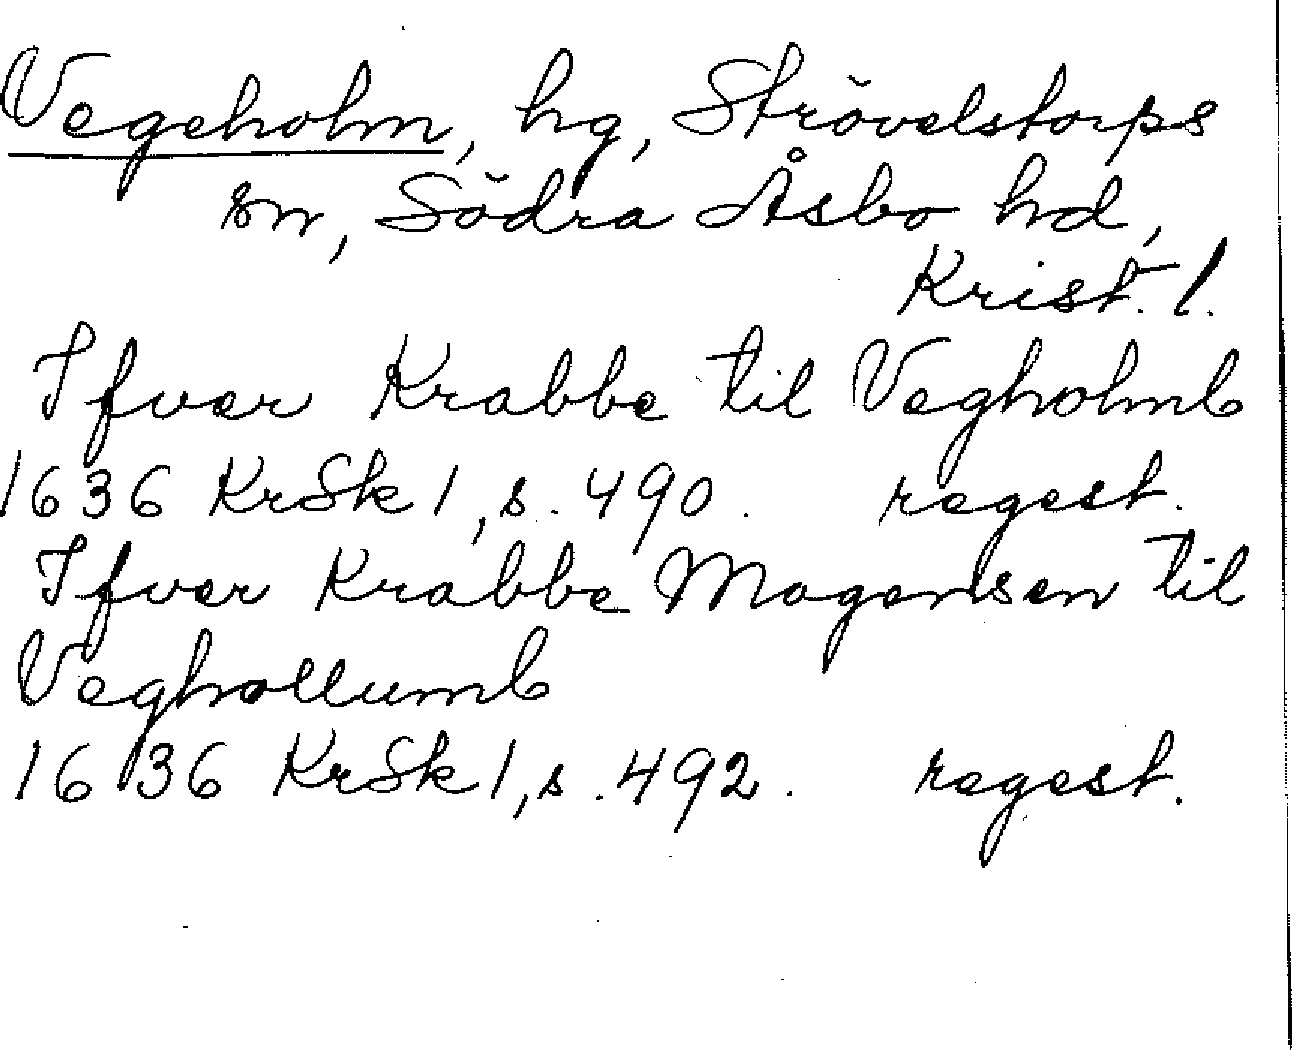 Vegeholm, hg, Strövelstorps
sn, Södra Åsbo hd,
Krist. l.
Ifver Krabbe til Vegholmb
1636 KrSk 1, s. 490. regest.
Ifver Krabbe Mogensen til
Veghollumb
1636 KrSk 1, s. 492. regest.